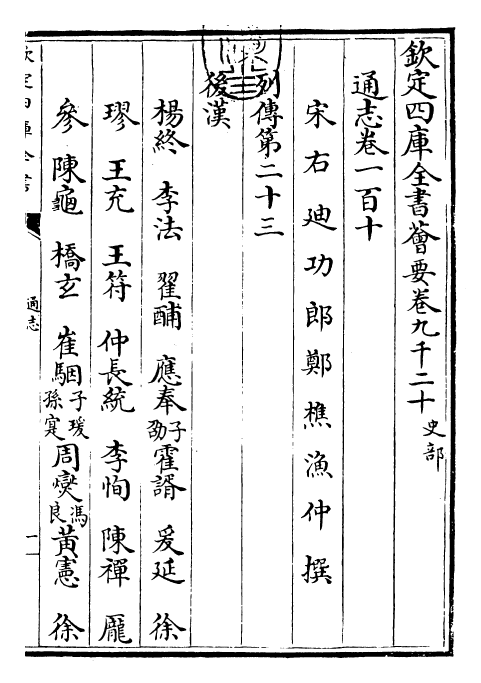 欽定四庫全書薈要卷九千二十 史部
通志卷一百十
宋右迪功郎鄭樵漁仲撰
列傳第二十三
後漢
楊終 李法 翟酺 應奉子劭 霍諝 爰延 徐
璆 王充 王符 仲長統 李恂 陳禪 龐
參 陳龜 橋玄 崔駰子瑗孫寔 周燮馮良 黃憲 徐
欽定四庫全書
通志
一